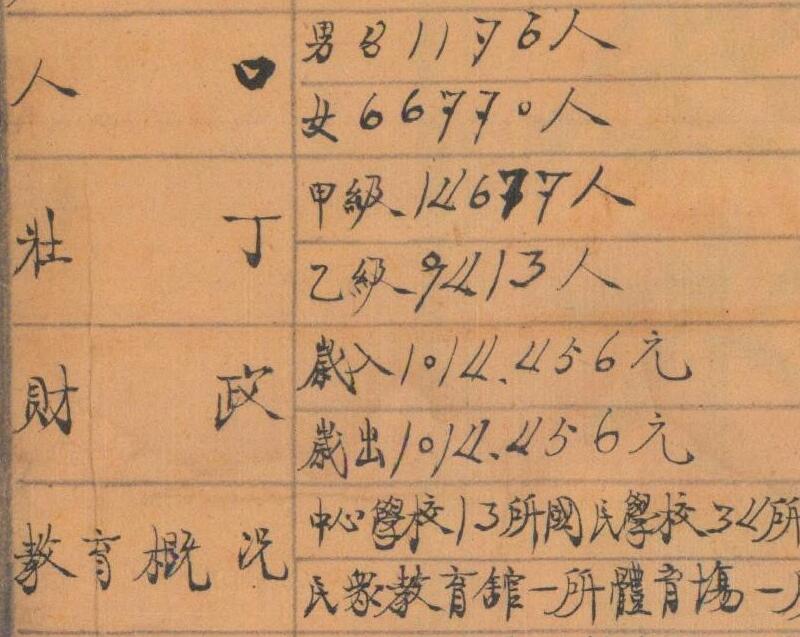 人口
男81176人
女66770人
壯丁
甲級14677人
乙級9413人
財政
歲入1014.456元
歲出1014.456元
教育概況
中心學校13所國民學校34所
民眾教育館一所體育場一